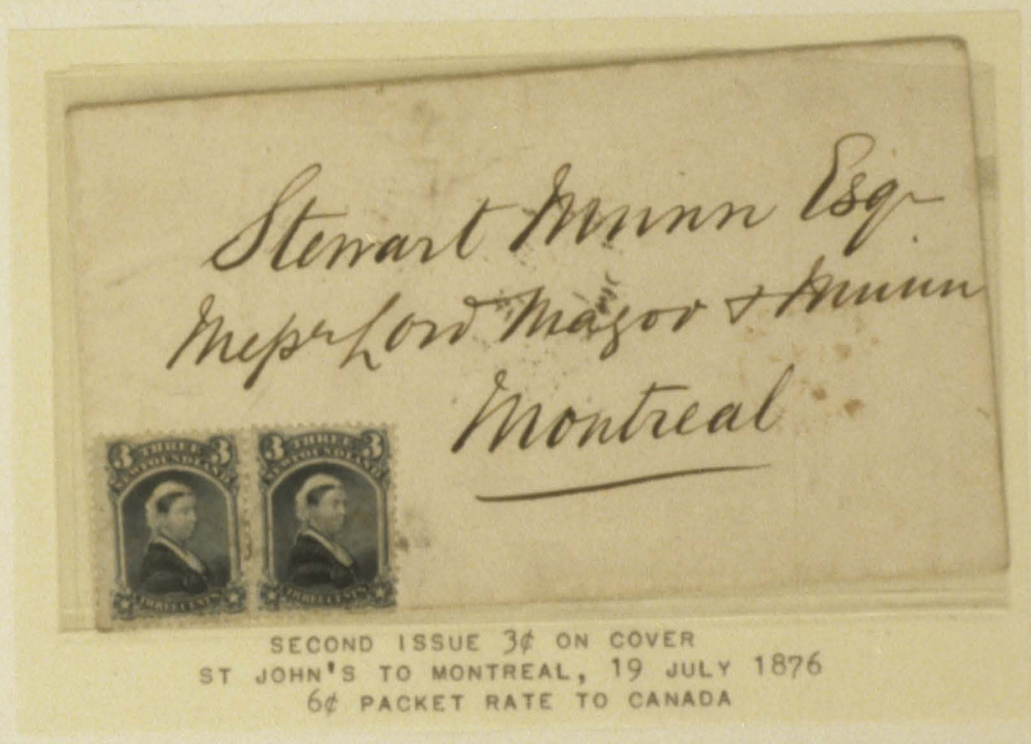 Stewart Munn Esqr
Messrs Lord Magor & Munn
Montreal
3 THREE 3
NEWFOUNDLAND
THREE CENTS
3 THREE 3
NEWFOUNDLAND
THREE CENTS
SECOND ISSUE 3¢ ON COVER
ST JOHN'S TO MONTREAL, 19 JULY 1876
6¢ PACKET RATE TO CANADA